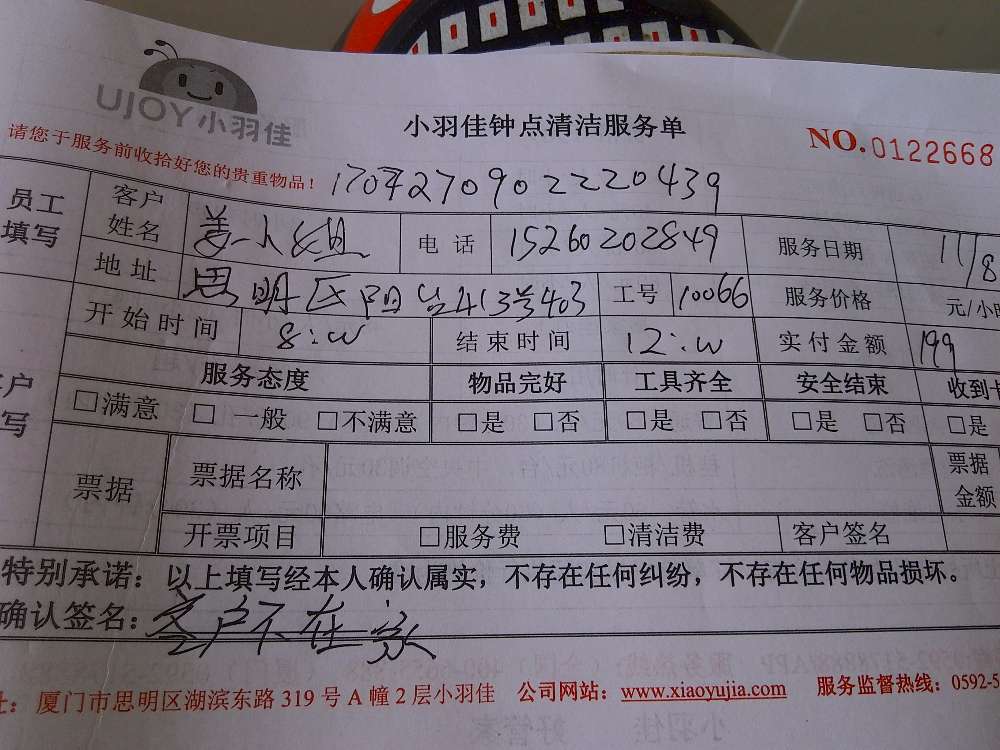 UJOY小羽佳
小羽佳钟点清洁服务单
NO.0122668
请您于服务前收拾好您的贵重物品！
员工填写 客户姓名 姜小姐 电话 15260202849 服务日期 11/8
地址 思明区阳台413号403 工号 10066 服务价格 元/小
开始时间 8: 结束时间 12: 实付金额 199
服务态度 物品完好 工具齐全 安全结束 收到
户写 □满意 □一般 □不满意 □是 □否 □是 □否 □是 □否 □是
票据 票据名称 票据金额
开票项目 □服务费 □清洁费 客户签名
特别承诺：以上填写经本人确认属实，不存在任何纠纷，不存在任何物品损坏。
确认签名：客户不在家
址：厦门市思明区湖滨东路319号A幢2层小羽佳 公司网站：www.xiaoyujia.com 服务监督热线：0592-5